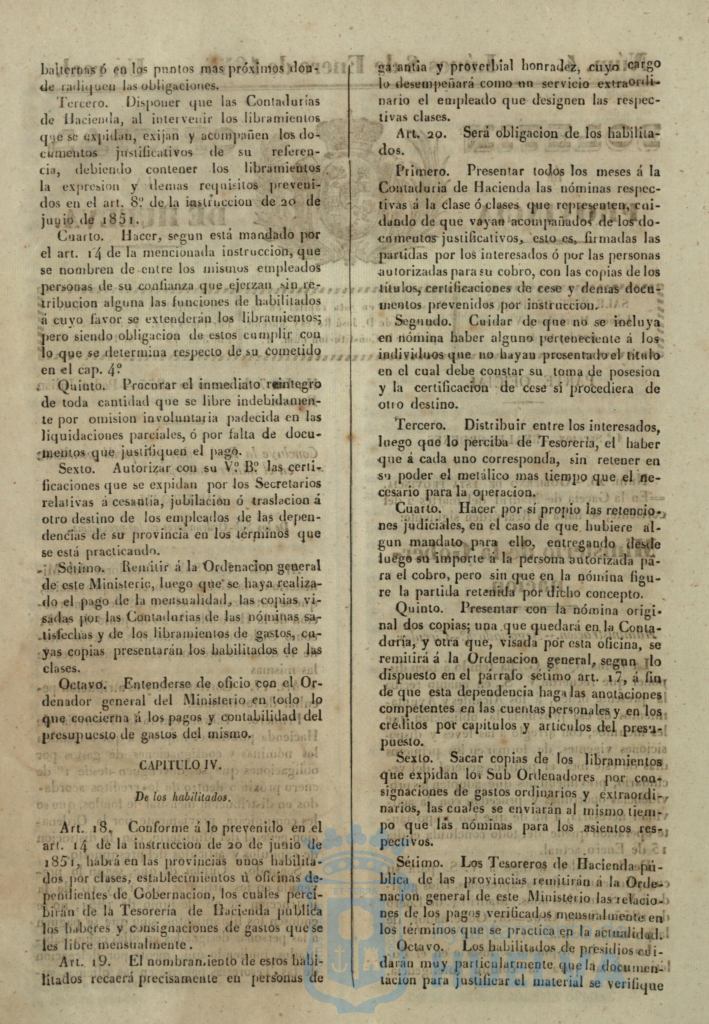 balternas ó en los puntos mas próximos don-
de radiquen las obligaciones.
Tercero. Disponer que las Contadurías
de Hacienda, al intervenir los libramientos
que se expidan, exijan y acompañen los do-
cumentos justificativos de su referen-
cia, debiendo contener los libramientos
la expresion y demas requisitos preveni-
dos en el art. 8.º de la instruccion de 20 de
junio de 1851.
Cuarto. Hacer, segun está mandado por
el art. 14 de la mencionada instruccion, que
se nombren de entre los mismos empleados
personas de su confianza que ejerzan sin re-
tribucion alguna las funciones de habilitados
á cuyo favor se extenderán los libramientos;
pero siendo obligacion de estos cumplir con
lo que se determina respecto de su cometido
en el cap. 4.º
Quinto. Procurar el inmediato reintegro
de toda cantidad que se libre indebidamen-
te por omision involuntaria padecida en las
liquidaciones parciales, ó por falta de docu-
mentos que justifiquen el pago.
Sexto. Autorizar con su V.º B.º las certi-
ficaciones que se expidan por los Secretarios
relativas á cesantía, jubilacion ó traslacion á
otro destino de los empleados de las depen-
dencias de su provincia en los términos que
se está practicando.
Sétimo. Remitir á la Ordenacion general
de este Ministerio, luego que se haya realiza-
do el pago de la mensualidad, las copias vi-
sadas por las Contadurías de las nóminas sa-
tisfechas y de los libramientos de gastos, cu-
yas copias presentarán los habilitados de las
clases.
Octavo. Entenderse de oficio con el Or-
denador general del Ministerio en todo lo
que concierna á los pagos y contabilidad del
presupuesto de gastos del mismo.
CAPITULO IV.
De los habilitados.
Art. 18. Conforme á lo prevenido en el
art. 14 de la instruccion de 20 de junio de
1851, habrá en las provincias unos habilita-
dos por clases, establecimientos ú oficinas de-
pendientes de Gobernacion, los cuales perci-
birán de la Tesorería de Hacienda pública
los haberes y consignaciones de gastos que se
les libre mensualmente.
Art. 19. El nombramiento de estos habi-
litados recaerá precisamente en personas de
garantia y proverbial honradez, cuyo cargo
lo desempeñará como un servicio extraordi-
nario el empleado que designen las respec-
tivas clases.
Art. 20. Será obligacion de los habilita-
dos.
Primero. Presentar todos los meses á la
Contaduría de Hacienda las nóminas respec-
tivas á la clase ó clases que representen, cui-
dando de que vayan acompañados de los do-
cumentos justificativos, esto es, firmadas las
partidas por los interesados ó por las personas
autorizadas para su cobro, con las copias de los
títulos, certificaciones de cese y demas docu-
mentos prevenidos por instruccion.
Segundo. Cuidar de que no se incluya
en nómina haber alguno perteneciente á los
individuos que no hayan presentado el título
en el cual debe constar su toma de posesion
y la certificacion de cese si procediera de
otro destino.
Tercero. Distribuir entre los interesados,
luego que lo perciba de Tesorería, el haber
que á cada uno corresponda, sin retener en
su poder el metálico mas tiempo que el ne-
cesario para la operacion.
Cuarto. Hacer por sí propio las retencio-
nes judiciales, en el caso de que hubiere al-
gun mandato para ello, entregando desde
luego su importe á la persona autorizada pa-
ra el cobro, pero sin que en la nómina figu-
re la partida retenida por dicho concepto.
Quinto. Presentar con la nómina origi-
nal dos copias; una que quedará en la Conta-
duría, y otra que, visada por esta oficina, se
remitirá á la Ordenacion general, segun lo
dispuesto en el párrafo sétimo art. 17, á fin
de que esta dependencia haga las anotaciones
competentes en las cuentas personales y en los
créditos por capítulos y artículos del presu-
puesto.
Sexto. Sacar copias de los libramientos
que expidan los Sub Ordenadores por con-
signaciones de gastos ordinarios y extraordi-
narios, las cuales se enviarán al mismo tiem-
po que las nóminas para los asientos res-
pectivos.
Sétimo. Los Tesoreros de Hacienda pú-
blica de las provincias remitirán á la Orde-
nacion general de este Ministerio las relacio-
nes de los pagos verificados mensualmente en
los términos que se practica en la actualidad.
Octavo. Los habilitados de presidios cui-
darán muy particularmente que la documen-
tacion para justificar el material se verifique